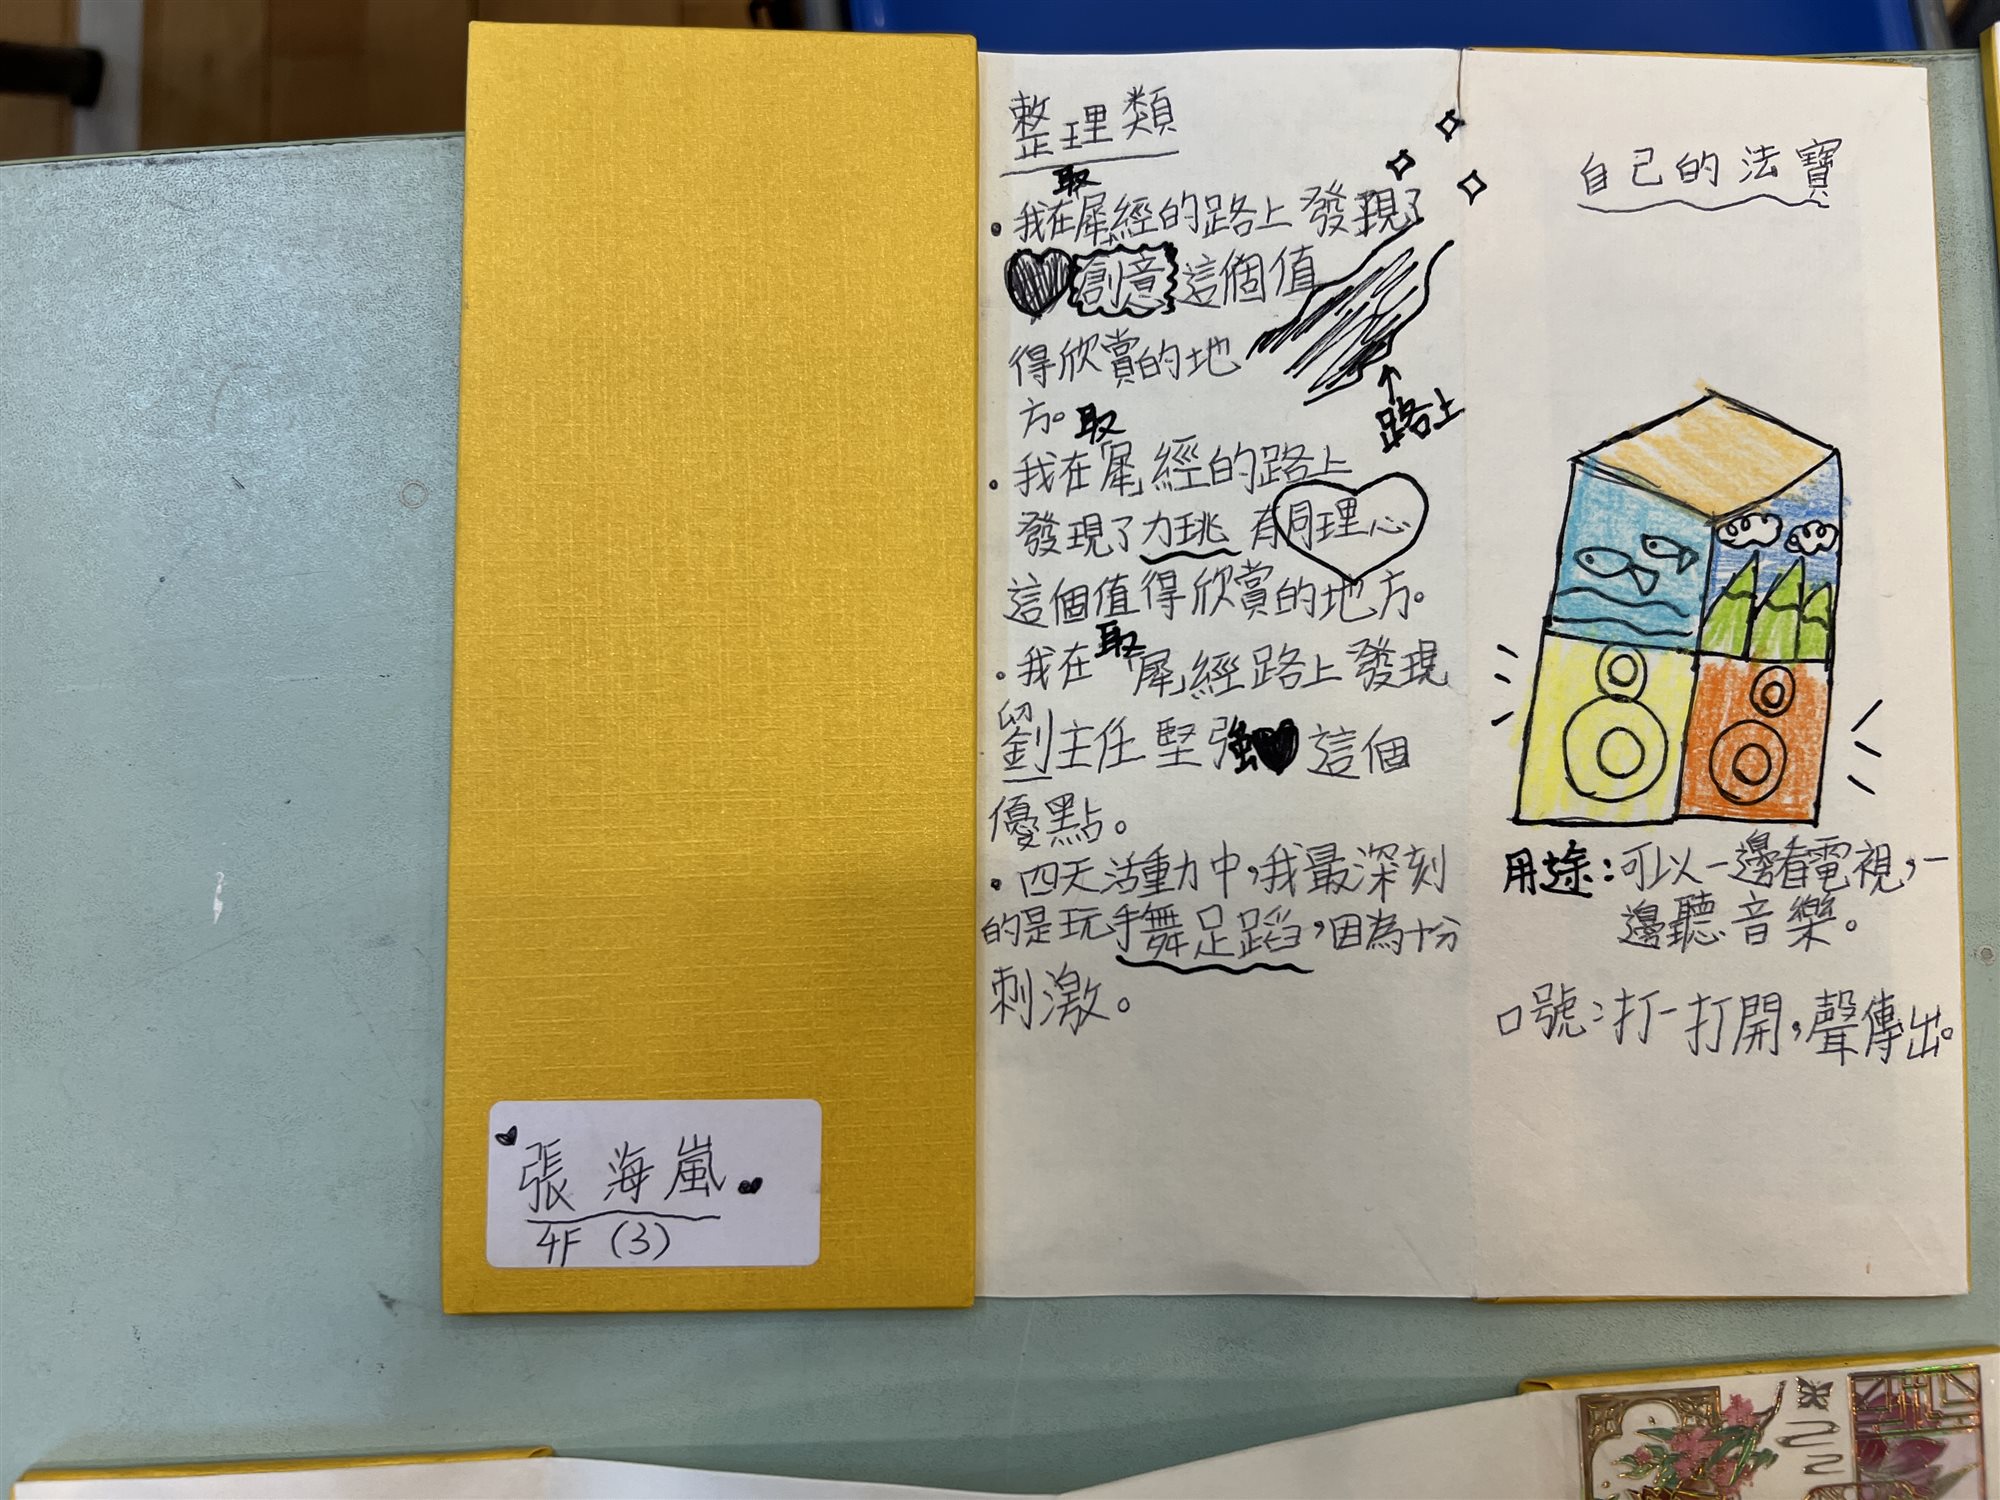 整理類
取
·我在「犀」經的路上發現了
創意這個值
得欣賞的地
方。
路上
取
·我在「犀」經的路上
發現了力珧有同理心
這個值得欣賞的地方。
取
·我在「犀」經路上發現
劉主任堅強這個
優點。
·四天活動中,我最深刻
的是玩手舞足蹈,因為十分
刺激。
自己的法寶
用途:可以一邊看電視,一
邊聽音樂。
口號:打一打開,聲傳出。
張海嵐
4F (3)